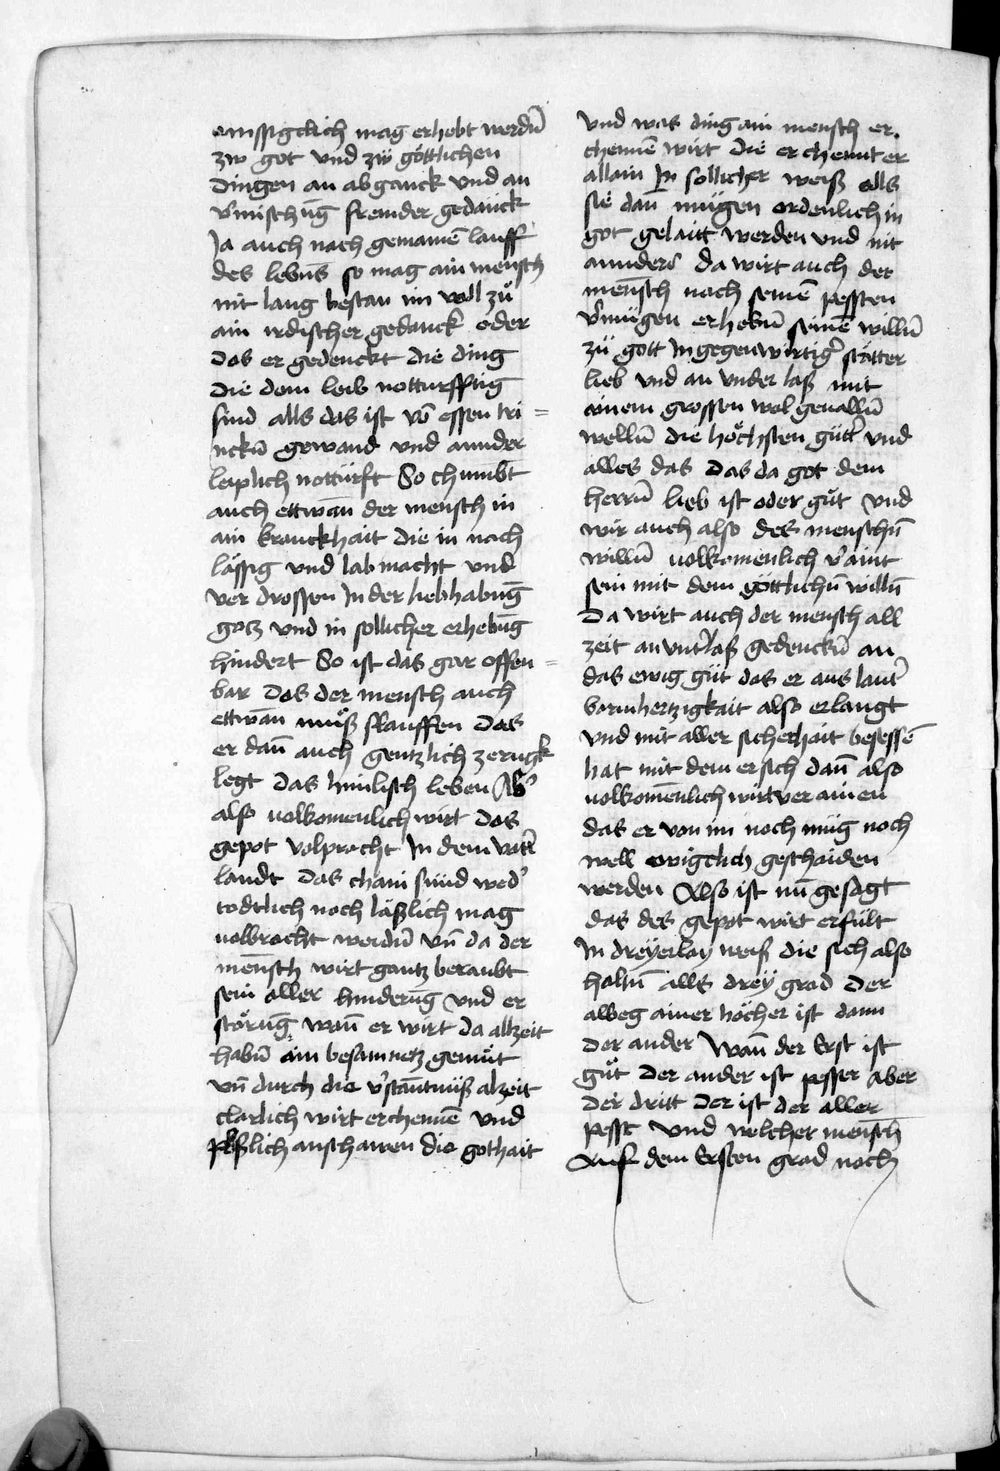 emssigclich mag erhebt werdn̄
zw got vnd zw̎ göttlichen
Dingen an abganck vnd an
v̾müschūg fremder gedanck
Ja auch nach gemainē lauff
des lebn̄s so mag ain mensch
nit lang bestan im vall zů
ain irdischer gedanck oder
Das er gedenckt die ding
Die dem leib notturfftig
sind alls das ist vō essen tri =
nckn̄ gewand vnd annder
leiplich notturft So chumbt
auch ettwan̄ der mensch in
ain kranckhait die in nach
lässig vnd lab macht vnd
ver drossen In der liebhabūg
gotz vnd in sollicher erhebūg
hindert So ist das gar offen =
bar Das der mensch auch
ettwan̄ můß slauffen Das
er dan̄ auch gentzlich zerugk
legt das himlisch leben Ab̾
also uolkomenlich wirt das
gepot volpracht In dem vatt̾
landt Das chain sünd wed̾
todtlich noch läßlich mag
uolbracht werdn̄ vn̄ da der
mensch wirt gantz beraubt
sein aller hinderūg vnd er
störūg wan̄ er wirt da allzeit
habn̄ ain besamnetz gemüt
vn̄ durch die v̾stāntnüß alzeit
clarlich wirt erchennē vnd
plößlich anschawen die gothait
vnd was ding ain mensch er.
chennē wirt die erchennt er
allain In sollicher weiß alls
sie dan mügen ordenlich in
got gelaitt werden vnd nit
annders da wirt auch der
mensch nach seinē pessten
v̾mügen erhebn̄ seinē willn̄
zů gott In gegenwirtig̾ stätter
lieb vnd an vnder laß mit
ainem grossen wol geualln̄
welln̄ die höchsten gütt̾ vnd
alles das Das da got dem
herrn̄ lieb ist oder gůt vnd
wir auch also des menschn̄
willn̄ uolkomenlich v̾aint
sein mit dem göttlichn̄ willn̄
Da wirt auch der mensch all
zeit an vnt̾laß gedenckn̄ an
das ewig gůt das er aus laut̾
barmhertzigkait also erlangt
vnd mit aller sicherhait besessē
hat mit dem er sich dan̄ also
uolkomēnlich wirt verainen
das er von im noch müg noch
well ewigclich geschaiden
werden Also ist nū gesagt
das des gepot wirt erfült
In dreyerlay weiß die sich also
haltn̄ alls drey grad Der
allweg ainer höcher ist dann
Der ander wan̄ der Erst ist
gůt Der ander ist pesser aber
Der dritt Der ist der aller
pesst vnd welcher mensch
Auf dem Ersten grad noch